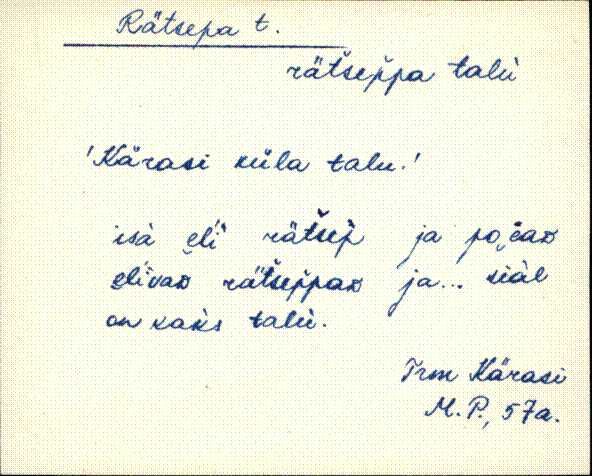 Rätsepa t.
rätšeppa talù
'Kärasi küla talu.'
isà eli rätšep ja pojad
elivad rätšeppad ja... siäl
on kaks talù.
Trm Kärasi
M.P., 57a.